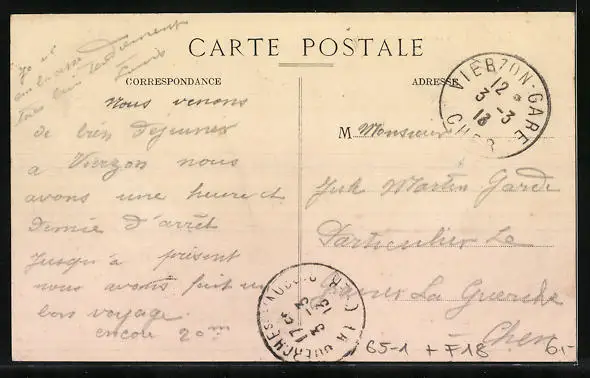 CARTE POSTALE
CORRESPONDANCE
ADRESSE
Je vs
embrasse
tous bien tendrement
Nous venons
de bien déjeuner
a Vierzon nous
avons une heure et
demie d'arrêt
Jusqu'à présent
nous avons fait un
bon voyage.
encore 20 m
M Monsieur
Martin Garde
Particulier Le
Gravier La Guerche
Cher
VIERZON-GARE
12
3 -3
13
CHER
LA GUERCHE
CHER
65-1 + F18
6,-